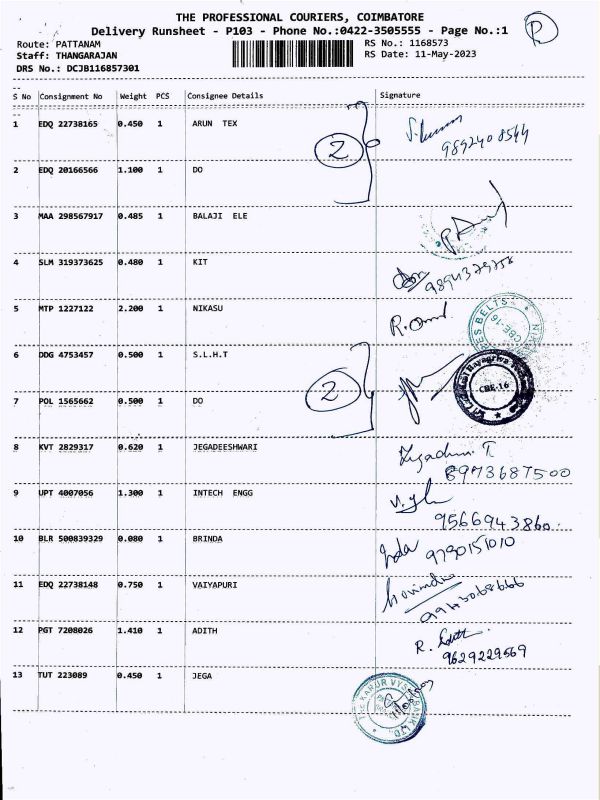 THE PROFESSIONAL COURIERS, COIMBATORE
P
Delivery Runsheet - P103 - Phone No.:0422-3505555 - Page No.:1
Route: PATTANAM
RS No.: 1168573
Staff: THANGARAJAN
RS Date: 11-May-2023
DRS No.: DCJB116857301
S No Consignment No Weight PCS Consignee Details Signature
1 EDQ 22738165 0.450 1 ARUN TEX
2
2 EDQ 20166566 1.100 1 DO
3 MAA 298567917 0.485 1 BALAJI ELE
4 SLM 319373625 0.480 1 KIT
5 MTP 1227122 2.200 1 NIKASU
BELTS CBE-16
6 DDG 4753457 0.500 1 S.L.H.T
2
CBE-16
7 POL 1565662 0.500 1 DO
8 KVT 2829317 0.620 1 JEGADEESHWARI
9 UPT 4007056 1.300 1 INTECH ENGG
9566943860.
10 BLR 500839329 0.080 1 BRINDA
9790151010
11 EDQ 22738148 0.750 1 VAIYAPURI
12 PGT 7208026 1.410 1 ADITH
9629229569
13 TUT 223089 0.450 1 JEGA
THE KARUR VYSYA BANK LTD.